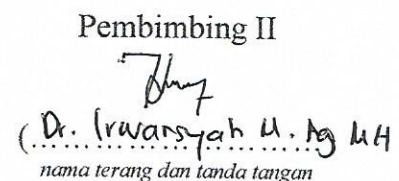 Pembimbing II
(Dr. Irwansyah M. Ag MH
nama terang dan tanda tangan